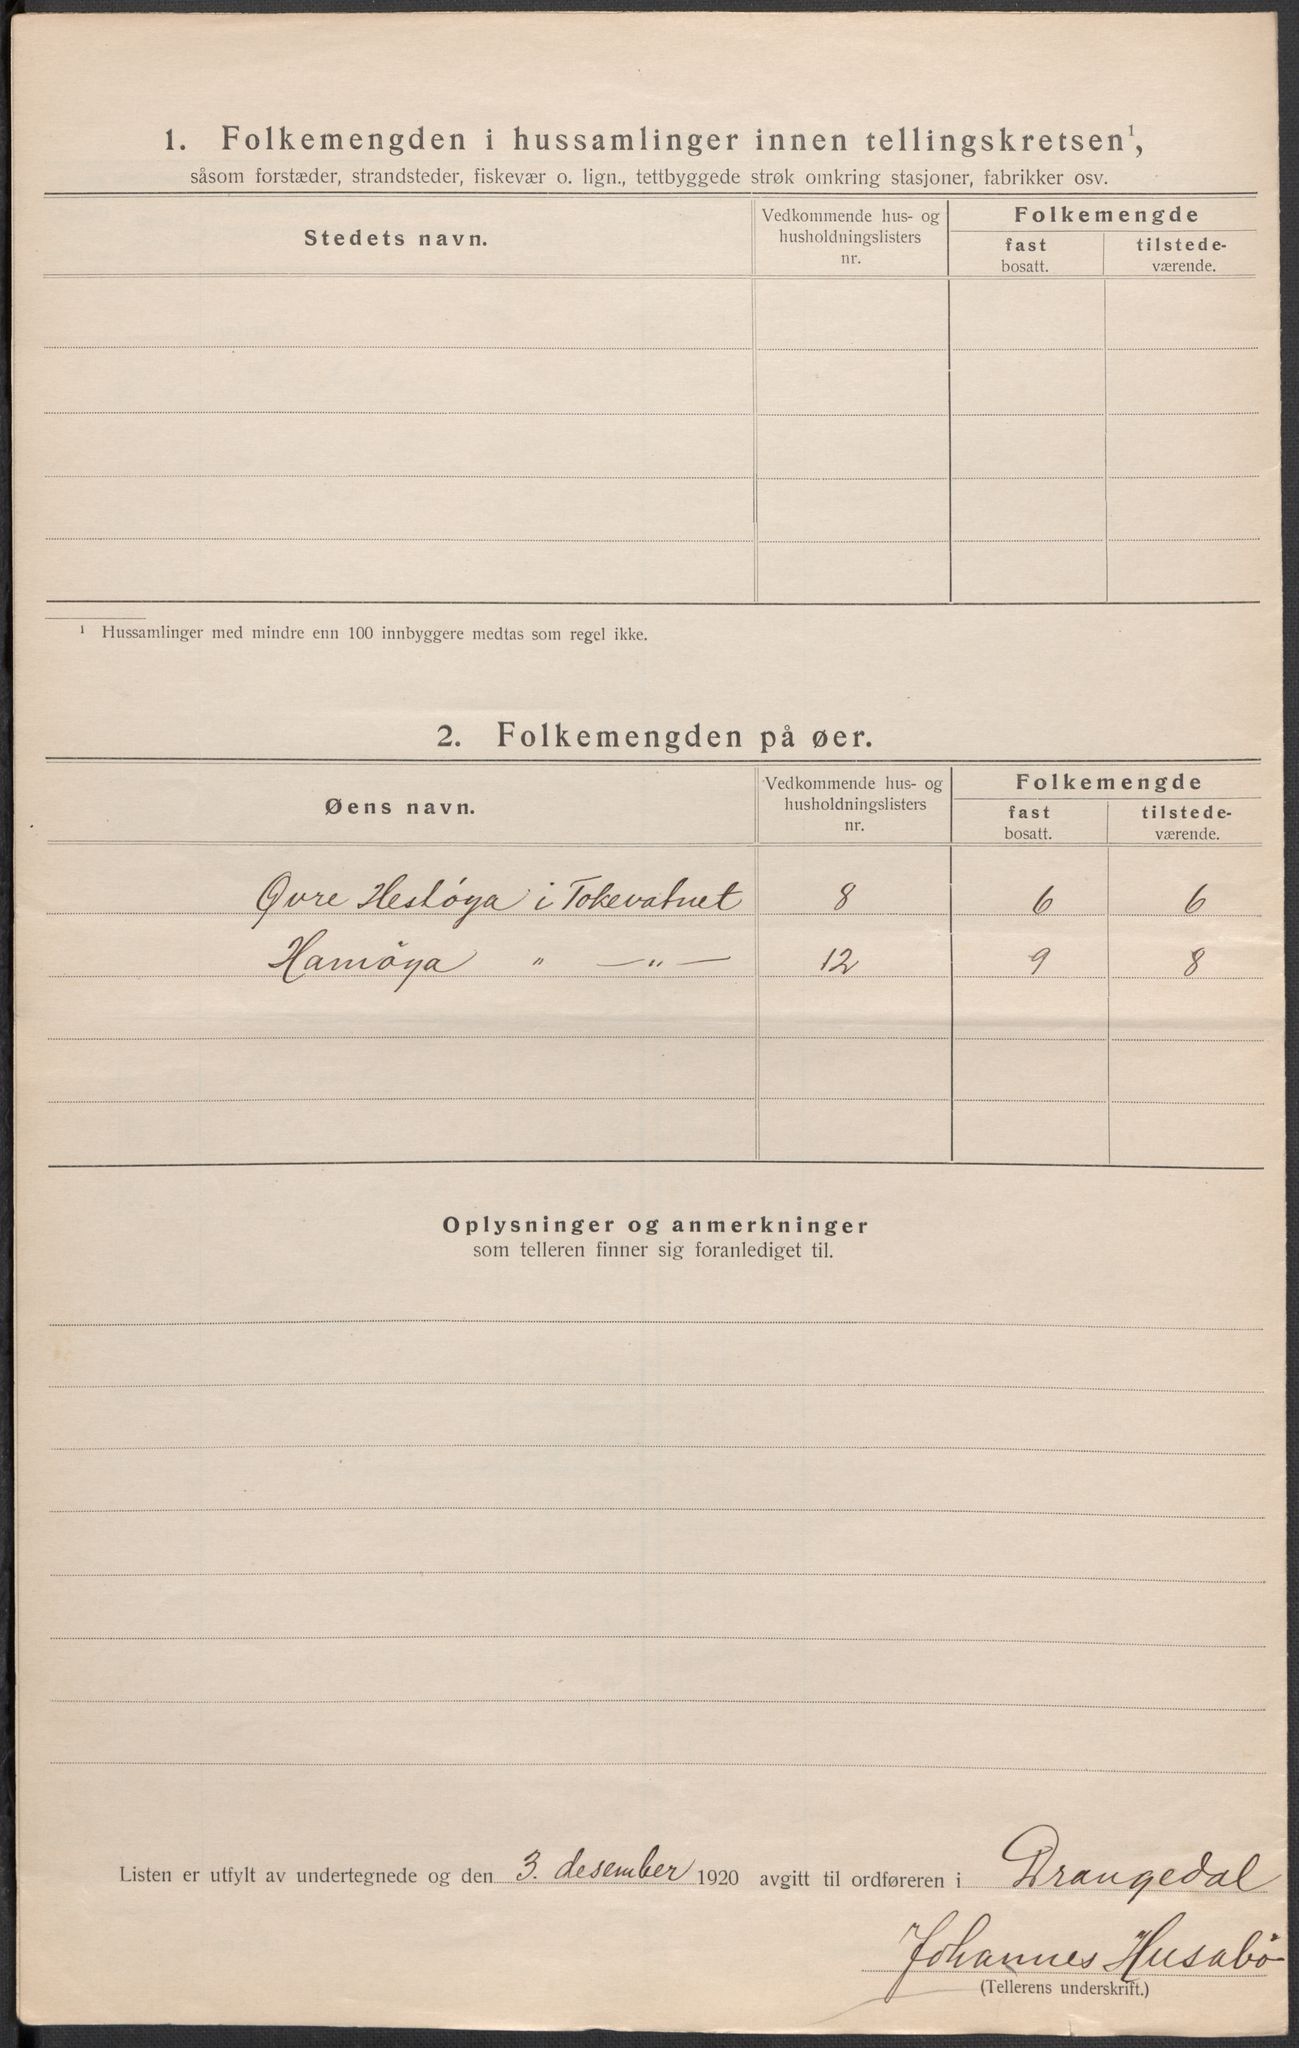 1. Folkemengden i hussamlinger innen tellingskretsen¹,
såsom forstæder, strandsteder, fiskevær o. lign., tettbyggede strøk omkring stasjoner, fabrikker osv.
Stedets navn.
Vedkommende hus- og
husholdningslisters
nr.
Folkemengde
fast
bosatt.
tilstede-
værende.
¹ Hussamlinger med mindre enn 100 innbyggere medtas som regel ikke.
2. Folkemengden på øer.
Øens navn.
Vedkommende hus- og
husholdningslisters
nr.
Folkemengde
fast
bosatt.
tilstede-
værende.
Øvre Hestøya i Tokevatnet 8 6 6
Hamøya " —"— 12 9 8
Oplysninger og anmerkninger
som telleren finner sig foranlediget til.
Listen er utfylt av undertegnede og den 3. desember 1920 avgitt til ordføreren i Drangedal
Johannes Husabø
(Tellerens underskrift.)